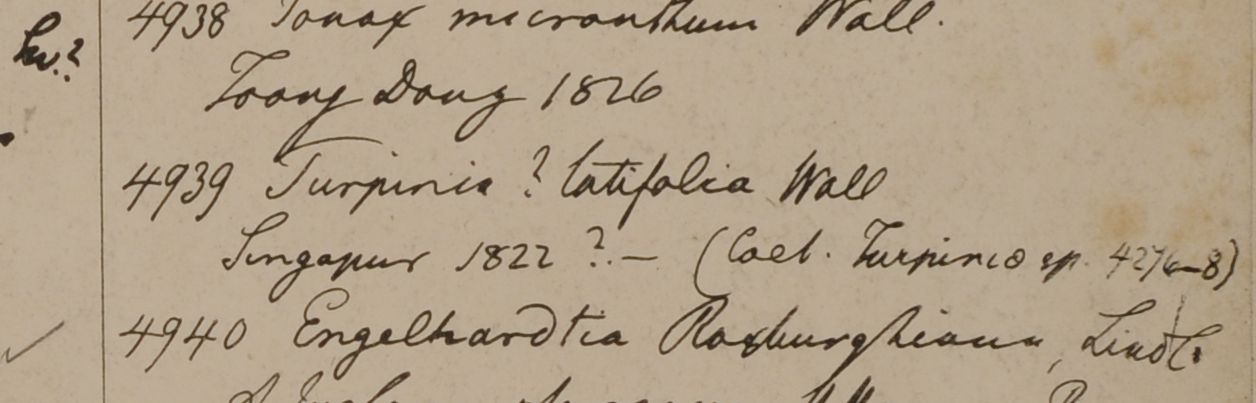 4938 micranthum Wall.
hw.?
Toong Dong 1826
4939 Turpinia ? latifolia Wall
Singapur 1822 ? — (Caet. Turpinia sp. 4276–8)
4940 Engelhardtia Roxburghiana, Lindl.